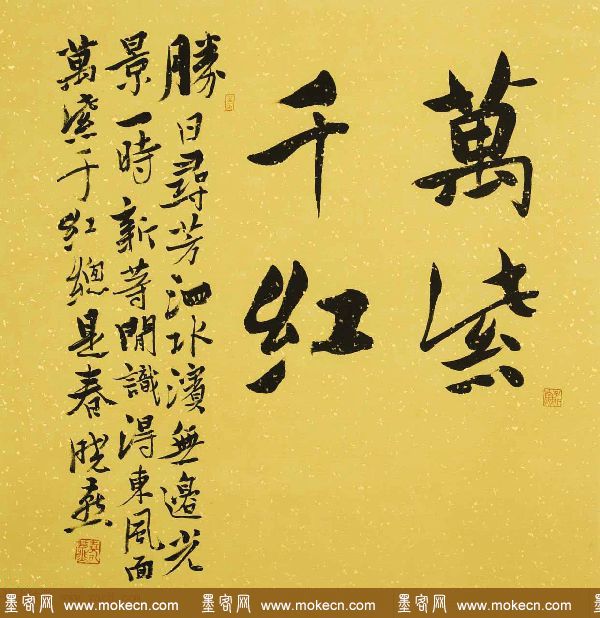 萬紫
千紅
勝日尋芳泗水濱無邊光
景一時新等閒識得東風面
萬紫千紅總是春曉燕
墨客网 www.mokecn.com 墨客网 www.mokecn.com 墨客网 www.mokecn.com